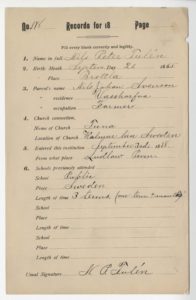 No. 118 Records for 18 Page
Fill every blank correctly and legibly.
1. Name in full Nils Peter Tulén
2. Birth Month Day 21 1865
Place
3. Parent's name Nils Johan Svenson
" residence
" occupation Farmers
4. Church connection
Church Tuna
Location of Church Kalmar län Sweeden
5. Entered this institution September 3rd 1888.
From what place Ludlow Penn
6. Schools previously attended
School Public
Place Sweden
Length of time
School
Place
Length of time
School
Place
Length of time
Usual Signature N. P. Tulén